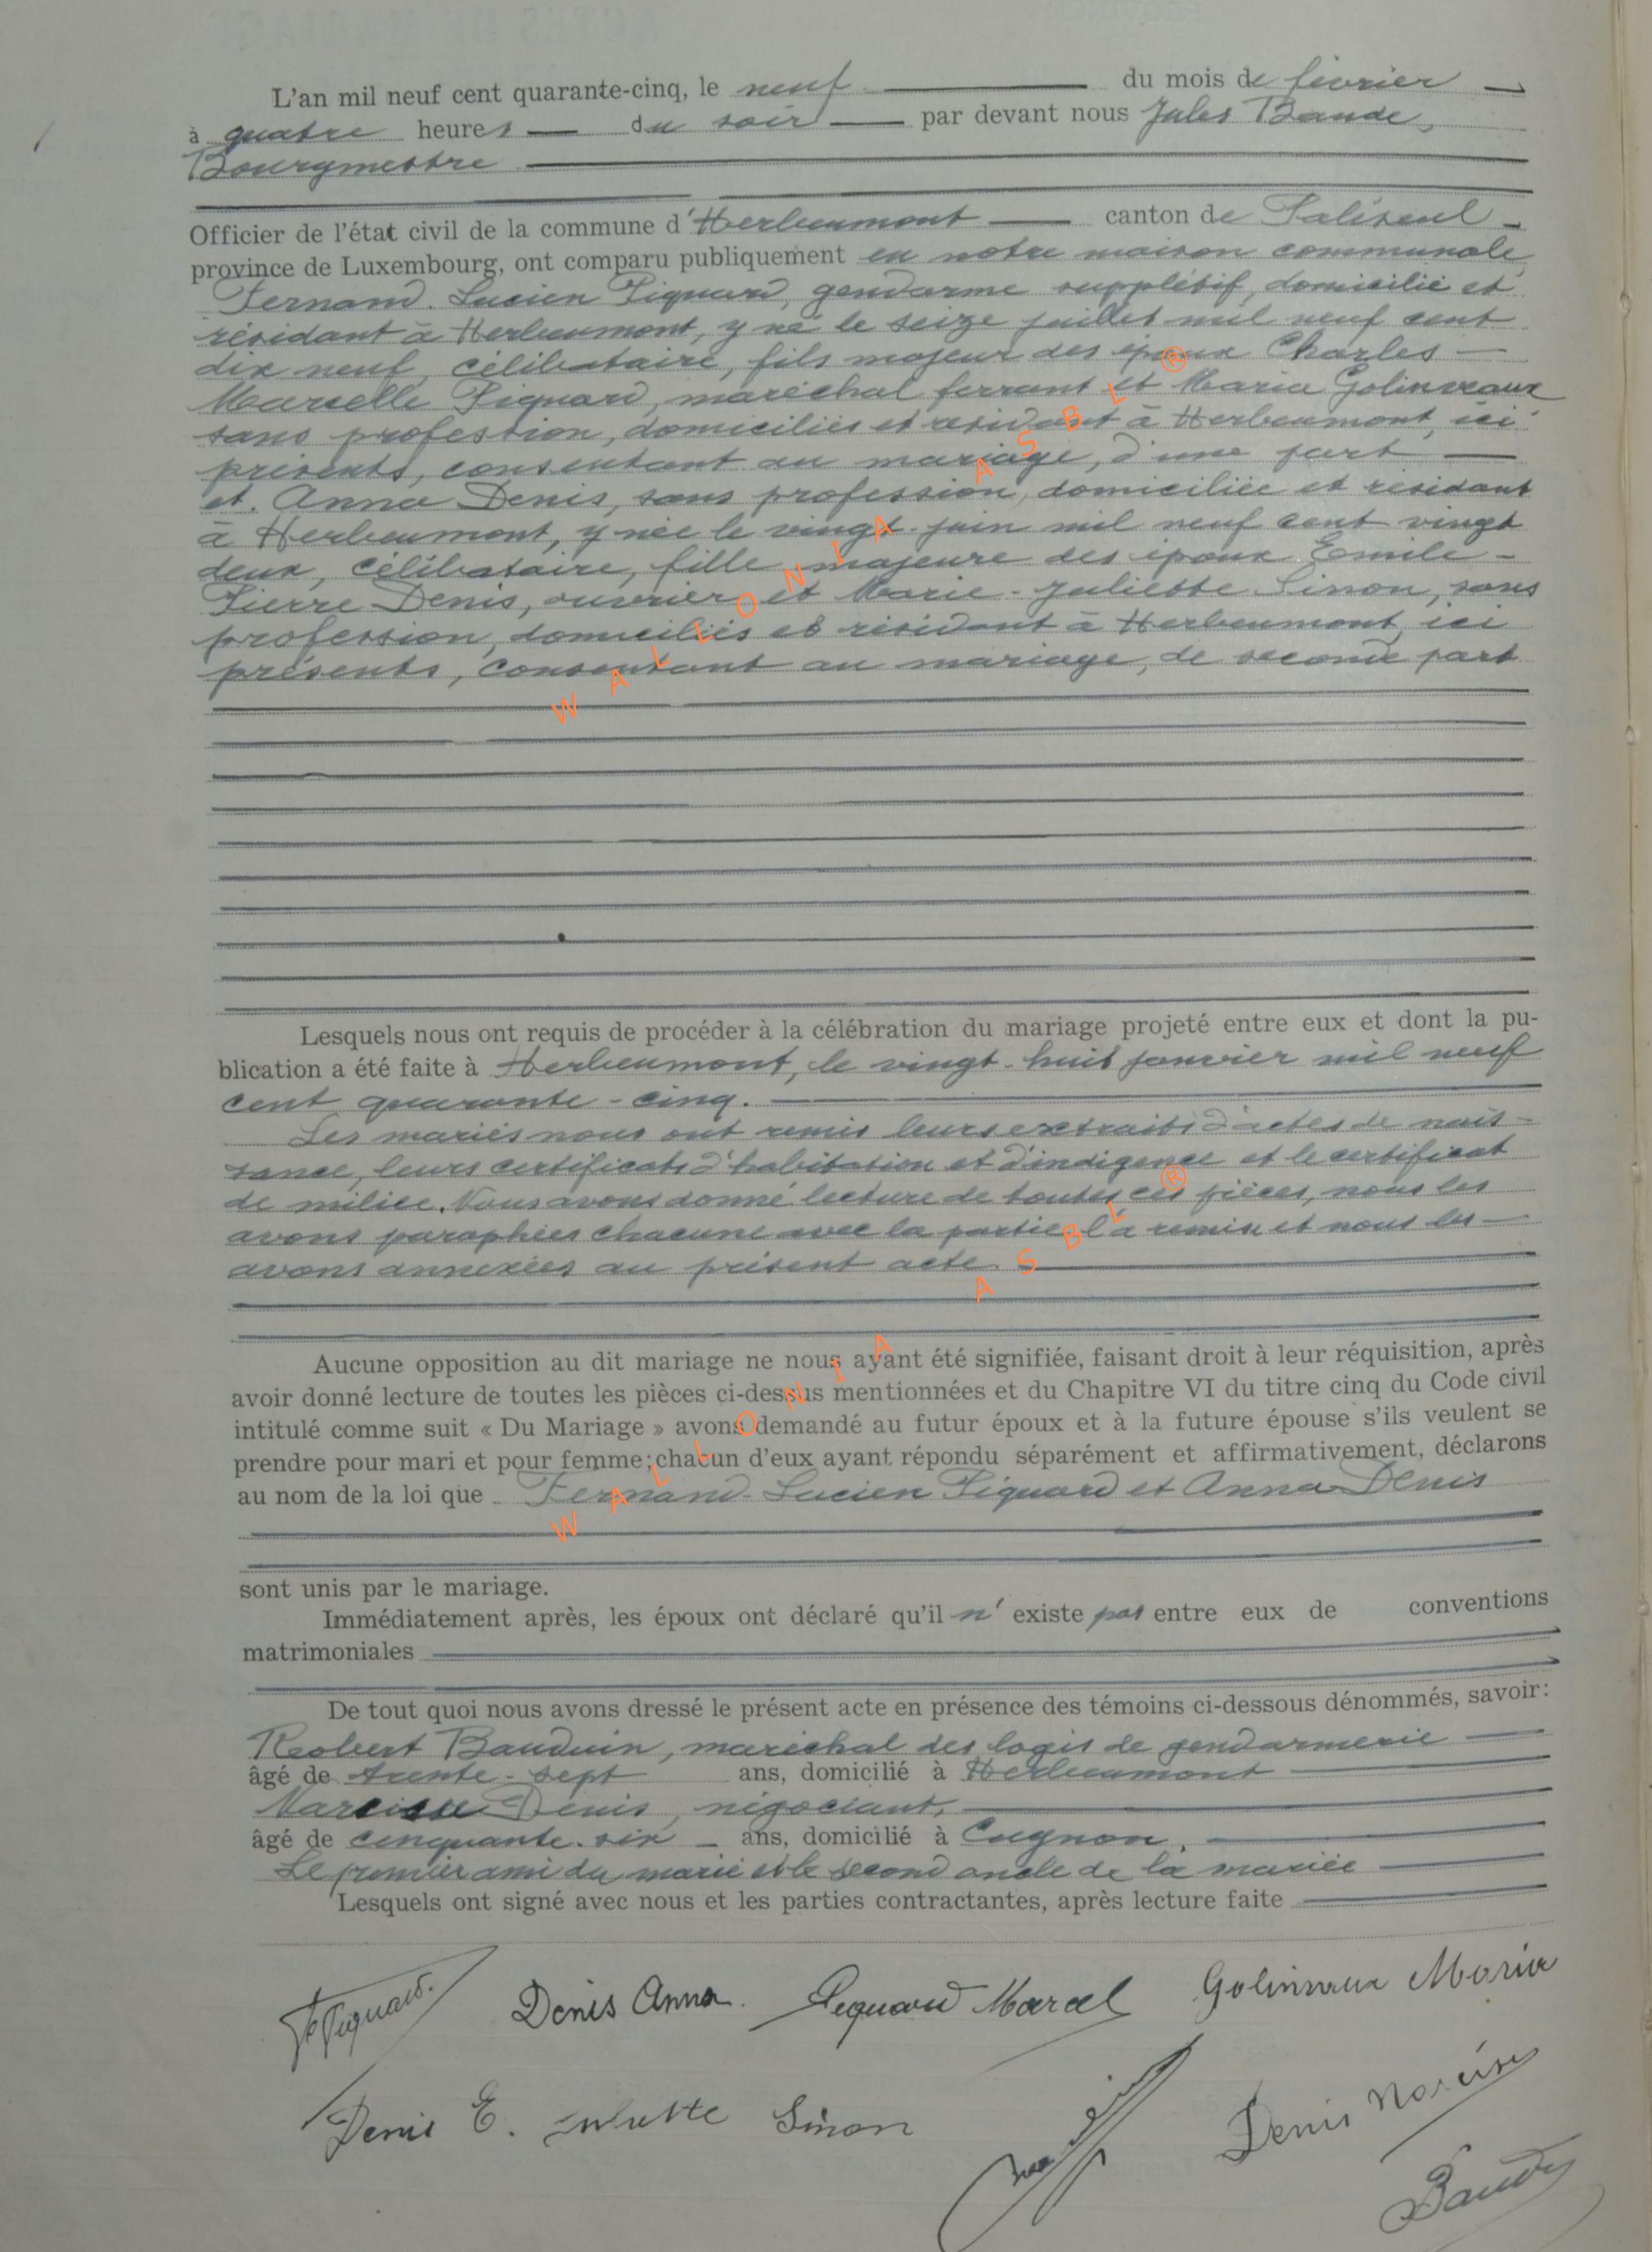 L'an mil neuf cent quarante-cinq, le neuf du mois de février
à quatre heures du soir par devant nous Jules Baude,
Bourgmestre
Officier de l'état civil de la commune d'Herbeumont canton de Paliseul
province de Luxembourg, ont comparu publiquement en notre maison communale
Fernand-Lucien Piquard, gendarme supplétif, domicilié et
résidant à Herbeumont, y né le seize juillet mil neuf cent
dix neuf, célibataire, fils majeur des époux Charles-
Marcelle Piquard, maréchal ferrant et Maria Golinveaux
sans profession, domiciliés et résidant à Herbeumont, ici
présents, consentant au mariage, d'une part
et Anna Denis, sans profession, domiciliée et résidant
à Herbeumont, y née le vingt juin mil neuf cent vingt
deux, célibataire, fille majeure des époux Emile-
Pierre Denis, ouvrier et Marie-Juliette Sinon, sans
profession, domiciliés et résidant à Herbeumont, ici
présents, consentant au mariage, de seconde part
Lesquels nous ont requis de procéder à la célébration du mariage projeté entre eux et dont la pu-
blication a été faite à Herbeumont, le vingt-huit janvier mil neuf
cent quarante-cinq.
Les mariés nous ont remis leurs extraits d'actes de nais-
sance, leurs certificats d'habitation et d'indigence et le certificat
de milice. Nous avons donné lecture de toutes ces pièces, nous les
avons paraphées chacune avec la partie l'a remise et nous les
avons annexées au présent acte.
WALLONIA ASBL ®
Aucune opposition au dit mariage ne nous ayant été signifiée, faisant droit à leur réquisition, après
avoir donné lecture de toutes les pièces ci-dessus mentionnées et du Chapitre VI du titre cinq du Code civil
intitulé comme suit « Du Mariage » avons demandé au futur époux et à la future épouse s'ils veulent se
prendre pour mari et pour femme; chacun d'eux ayant répondu séparément et affirmativement, déclarons
au nom de la loi que Fernand-Lucien Piquard et Anna Denis
WALLONIA ASBL ®
sont unis par le mariage.
Immédiatement après, les époux ont déclaré qu'il n'existe pas entre eux de conventions
matrimoniales
De tout quoi nous avons dressé le présent acte en présence des témoins ci-dessous dénommés, savoir:
Robert Bauduin, maréchal des logis de gendarmerie
âgé de trente-sept ans, domicilié à Herbeumont
Narcisse Denis, négociant,
âgé de cinquante-six ans, domicilié à Cugnon.
Le premier ami du marié et le second oncle de la mariée
Lesquels ont signé avec nous et les parties contractantes, après lecture faite
Piquard. Denis Anna. Piquard Marcel Golinveaux Maria
Denis E. Juliette Sinon Denis Narcisse